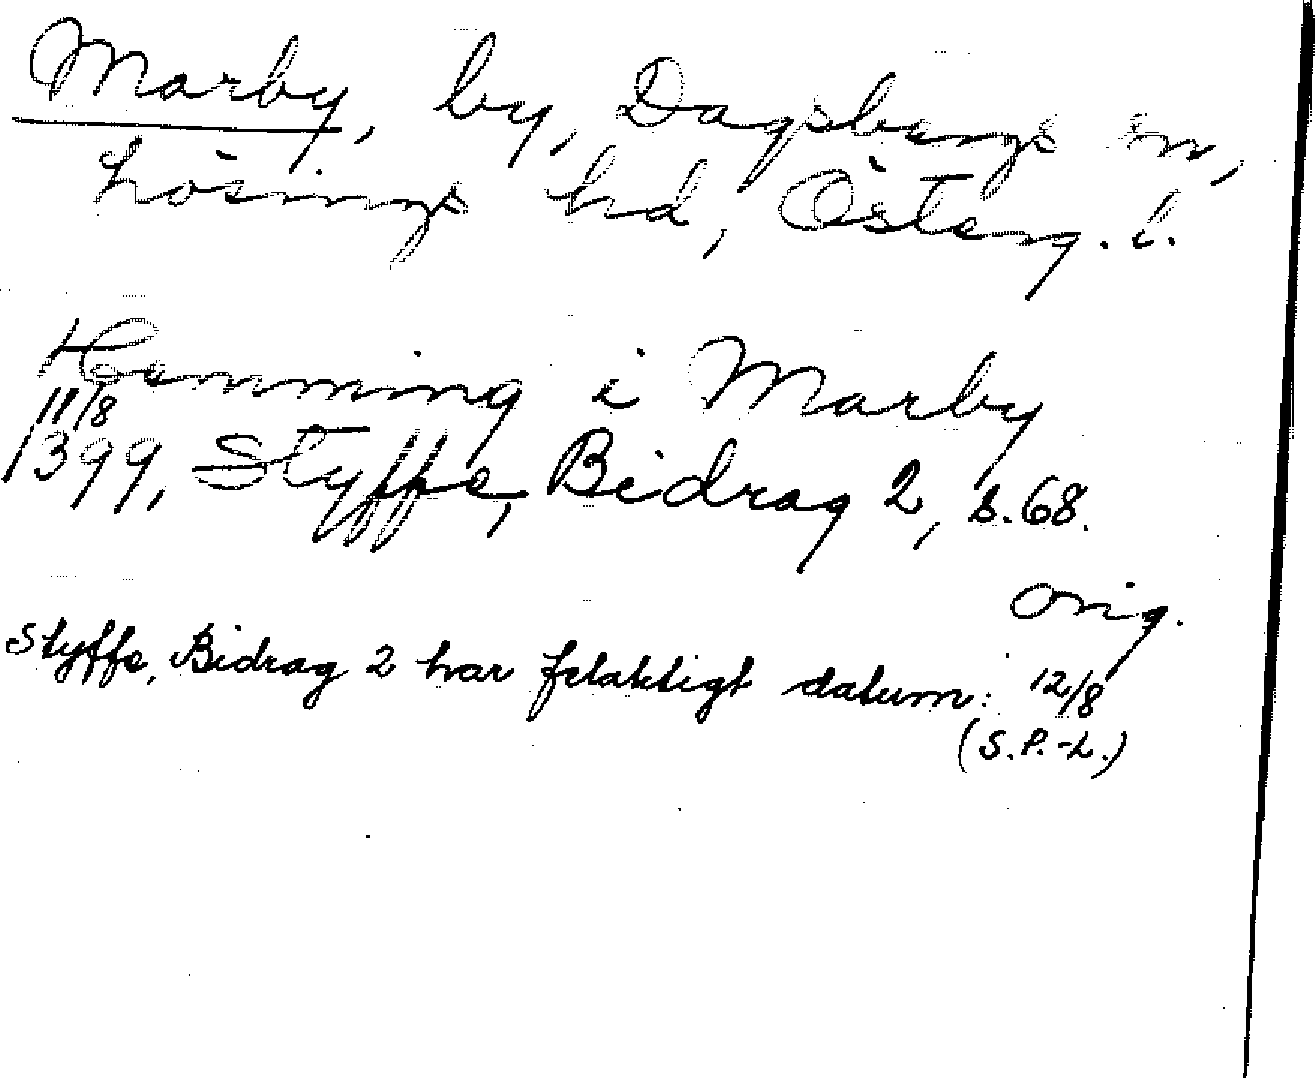 Marby, by, Dagsbergs sn,
Lösings hd, Österg. l.
Hemming i Marby
11/8
1399, Styffe, Bidrag 2, s. 68.
Orig.
Styffe, Bidrag 2 har felaktigt datum: 12/8
(S.P.-L.)